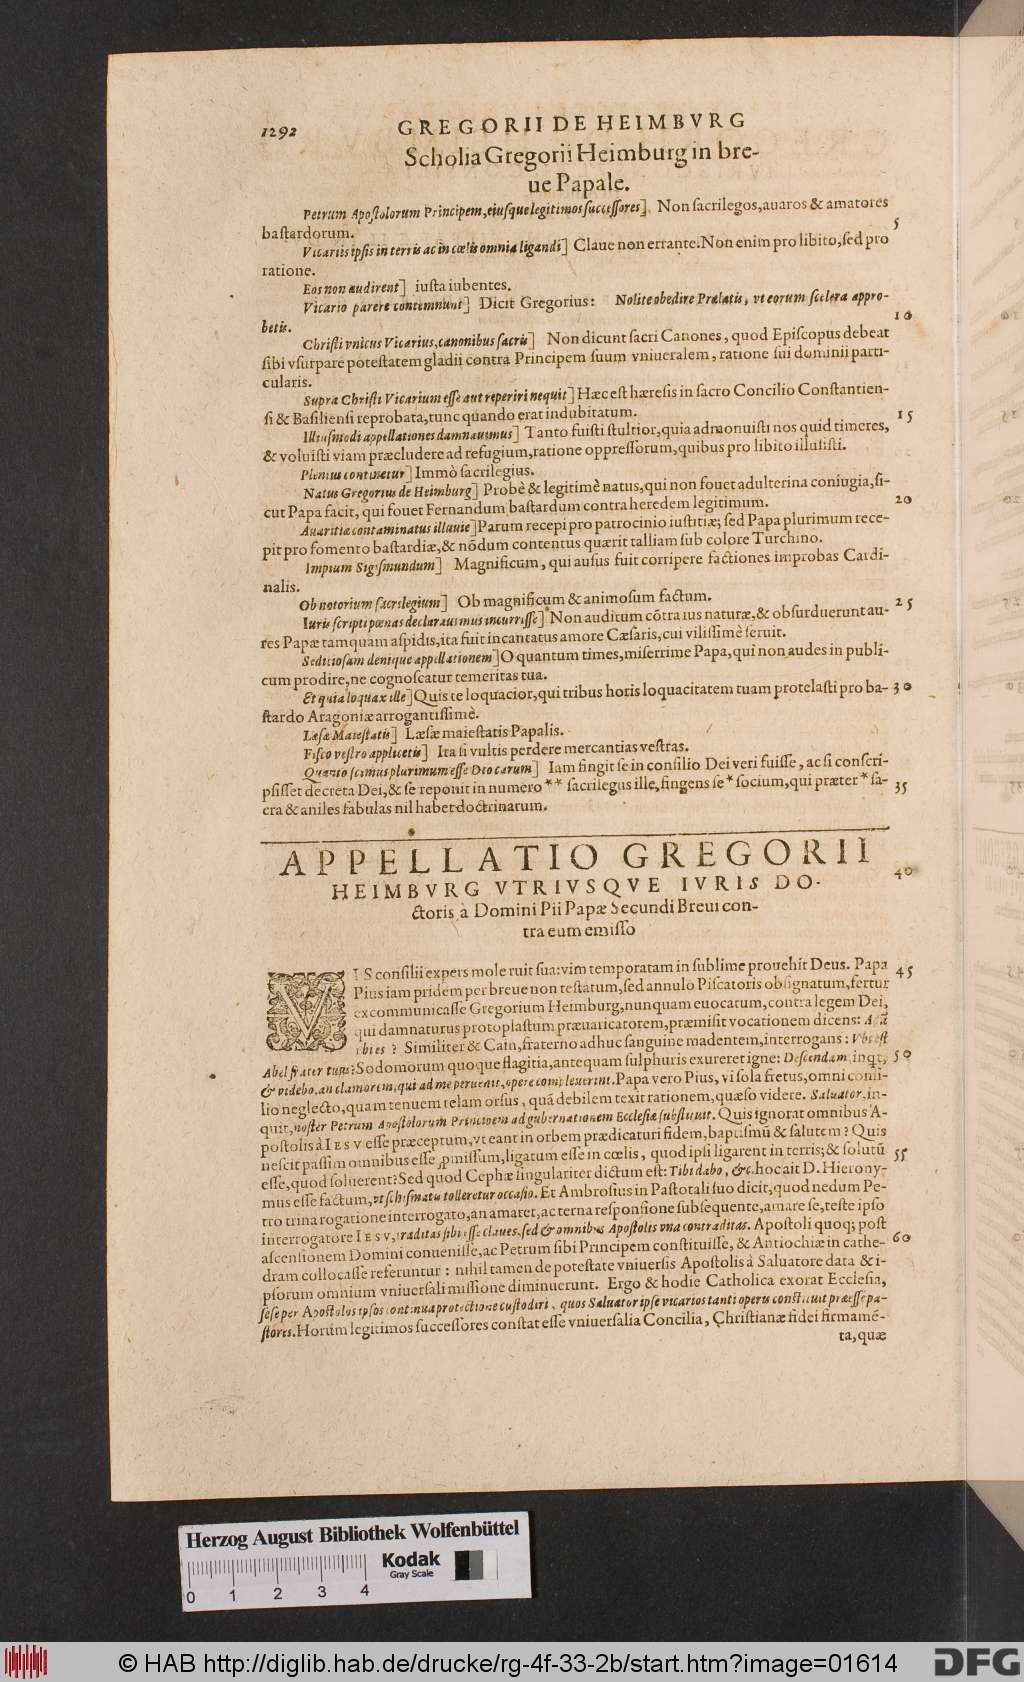 1292 GREGORII DE HEIMBVRG
Scholia Gregorii Heimburg in bre-
ue Papale.
Petrum Apostolorum Principem, eiusque legitimos successores] Non sacrilegos, auaros & amatores
bastardorum. 5
Vicariis ipsis in terris ac in cœlis omnia ligandi] Claue non errante. Non enim pro libito, sed pro
ratione.
Eos non audirent] iusta iubentes.
Vicario parere contemnunt] Dicit Gregorius: Nolite obedire Prælatis, vt eorum scelera appro-
betis. 10
Christi vnicus Vicarius, canonibus sacris] Non dicunt sacri Canones, quod Episcopus debeat
sibi vsurpare potestatem gladii contra Principem suum vniueralem, ratione sui dominii parti-
cularis.
Supra Christi Vicarium esse aut reperiri nequit] Hæc est hæresis in sacro Concilio Constantien-
si & Basiliensi reprobata, tunc quando erat indubitatum. 15
Illiusmodi appellationes damnauimus] Tanto fuisti stultior, quia admonuisti nos quid timeres,
& voluisti viam præcludere ad refugium, ratione oppressorum, quibus pro libito illusisti.
Plenius continetur] Immò sacrilegius.
Natus Gregorius de Heimburg] Probè & legitimè natus, qui non fouet adulterina coniugia, si-
cut Papa facit, qui fouet Fernandum bastardum contra heredem legitimum. 20
Auaritia contaminatus illuuie] Parum recepi pro patrocinio iustitiæ; sed Papa plurimum rece-
pit pro fomento bastardiæ, & nõdum contentus quærit talliam sub colore Turchino.
Impium Sigismundum] Magnificum, qui ausus fuit corripere factiones improbas Cardi-
nalis.
Ob notorium sacrilegium] Ob magnificum & animosum factum. 25
Iuris scripti pœnas declarauimus incurrisse] Non auditum cõtra ius naturæ, & obsurduerunt au-
res Papæ tamquam aspidis, ita fuit incantatus amore Cæsaris, cui vilissimè seruit.
Seditiosam denique appellationem] O quantum times, miserrime Papa, qui non audes in publi-
cum prodire, ne cognoscatur temeritas tua.
Et quia loquax ille] Quis te loquacior, qui tribus horis loquacitatem tuam protelasti pro ba- 30
stardo Aragoniæ arrogantissimè.
Læsæ Maiestatis] Læsæ maiestatis Papalis.
Fisco vestro applicetis] Ita si vultis perdere mercantias vestras.
Quanto scimus plurimum esse Deo carum] Iam fingit se in consilio Dei veri fuisse, ac si conscri-
psisset decreta Dei, & se reponit in numero ** sacrilegus ille, fingens se * socium, qui præter * sa- 35
cra & aniles fabulas nil habet doctrinarum.
APPELLATIO GREGORII
HEIMBVRG VTRIVSQVE IVRIS DO- 40
ctoris à Domini Pii Papæ Secundi Breui con-
tra eum emisso
VIS consilii expers mole ruit sua: vim temporatam in sublime prouehit Deus. Papa 45
Pius iam pridem per breue non testatum, sed annulo Piscatoris obsignatum, fertur
excommunicasse Gregorium Heimburg, nunquam euocatum, contra legem Dei,
qui damnaturus protoplastum præuaricatorem, præmisit vocationem dicens: Adã
vbi es? Similiter & Cain, fraterno adhuc sanguine madentem, interrogans: Vbi est
Abel frater tuus? Sodomorum quoque flagitia, antequam sulphuris exureret igne: Descendam, inqt, 50
& videbo, an clamorem, qui ad me peruenit, opere compleuerint. Papa vero Pius, vi sola fretus, omni consi-
lio neglecto, quam tenuem telam orsus, quã debilem texit rationem, quæso videre. Saluator, in-
quit, noster Petrum Apostolorum Principem ad gubernationem Ecclesiæ substituit. Quis ignorat omnibus A-
postolis à IESV esse præceptum, vt eant in orbem prædicaturi fidem, baptismũ & salutem? Quis
nescit passim omnibus esse ꝓmissum, ligatum esse in cœlis, quod ipsi ligarent in terris; & solutũ 55
esse, quod soluerent? Sed quod Cephæ singulariter dictum est: Tibi dabo, &c. hoc ait D. Hierony-
mus esse factum, vt schismatis tolleretur occasio. Et Ambrosius in Pastorali suo dicit, quod nedum Pe-
tro trina rogatione interrogato, an amaret, ac terna responsione subsequente, amare se, teste ipso
interrogatore IESV, traditas sibi esse claues, sed & omnibus Apostolis vna contraditas. Apostoli quoq; post
ascensionem Domini conuenisse, ac Petrum sibi Principem constituisse, & Antiochiæ in cathe- 60
dram collocasse referuntur: nihil tamen de potestate vniuersis Apostolis à Saluatore data & i-
psorum omnium vniuersali missione diminuerunt. Ergo & hodie Catholica exorat Ecclesia,
sese per Apostolos ipsos continua protectione custodiri, quos Saluator ipse vicarios tanti operis constituit præesse pa-
stores. Horum legitimos successores constat esse vniuersalia Concilia, Christianæ fidei firmamẽ-
ta, quæ
Herzog August Bibliothek Wolfenbüttel
Kodak
Gray Scale
0 1 2 3 4
© HAB http://diglib.hab.de/drucke/rg-4f-33-2b/start.htm?image=01614
DFG